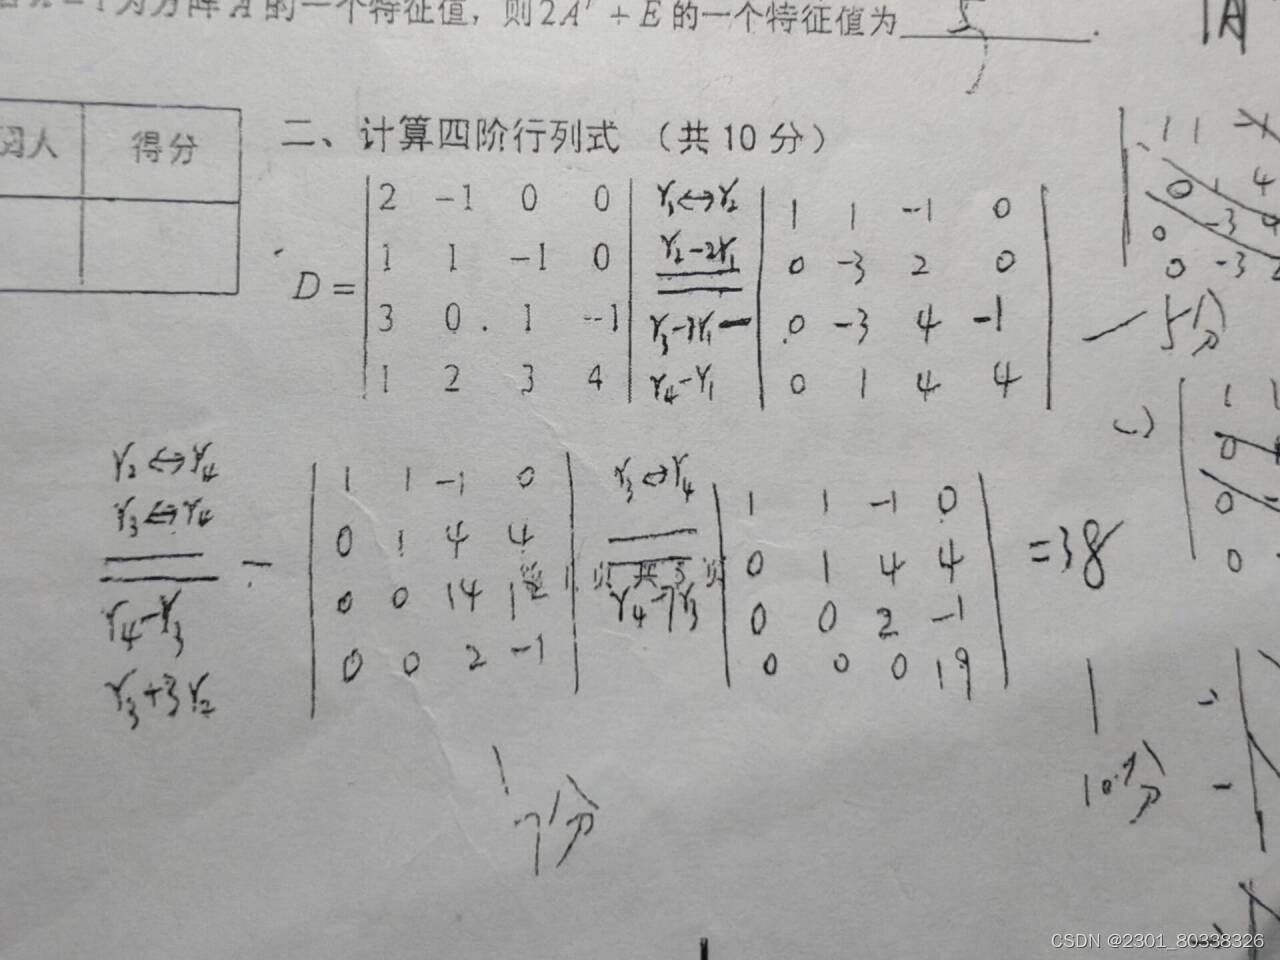 为方阵 A 的一个特征值，则 2A + E 的一个特征值为 5 .
阅人 得分
二、计算四阶行列式 （共 10 分）
D =
2 -1 0 0
1 1 -1 0
3 0 1 -1
1 2 3 4
r₁↔r₂
r₂-2r₁
r₃-3r₁
r₄-r₁
-
1 1 -1 0
0 -3 2 0
0 -3 4 -1
0 1 4 4
5分
r₂↔r₄
r₃↔r₄
r₄-r₃
r₃+3r₂
-
1 1 -1 0
0 1 4 4
0 0 14 12
0 0 2 -1
r₃↔r₄
r₄-7r₃
1 1 -1 0
0 1 4 4
0 0 2 -1
0 0 0 19
=38
7分
10分
CSDN @2301_80338326